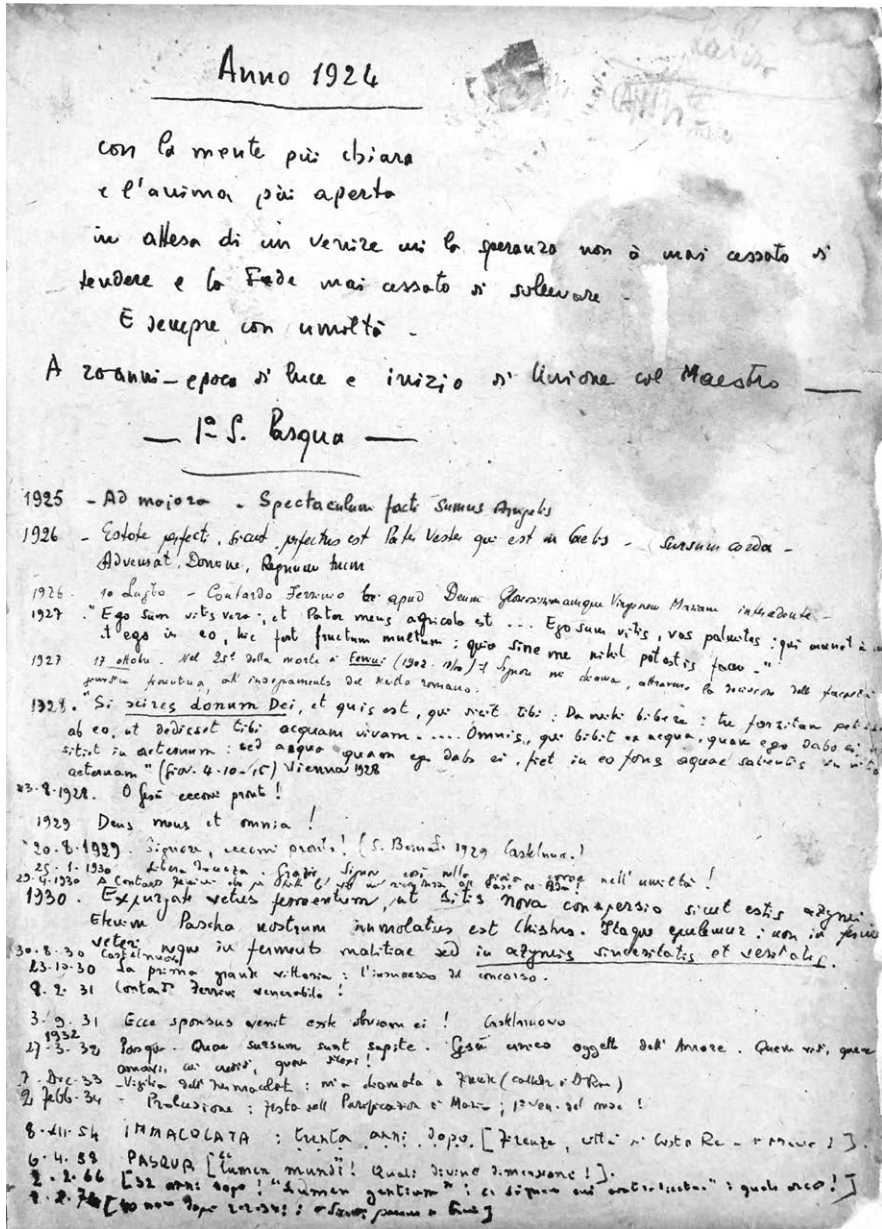 Anno 1924
con la mente più chiara
e l'anima più aperta
in attesa di un venire cui la speranza non à mai cessato di
tendere e la Fede mai cessato di sollevare -
E sempre con umiltà -
A 20 anni - epoca di luce e inizio di Unione col Maestro —
— 1ª S. Pasqua —
1925 - Ad maiora - Spectaculum facti sumus Angelis
1926 - Estote perfecti, sicut perfectus est Pater Vester qui est in Caelis - Sursum corda -
Adveniat, Domine, Regnum tuum
1926. 10 Luglio - Contardo Ferrino apud Deum Gloriosissimamque Virginem Mariam intercedente -
1927 . "Ego sum vitis vera, et Pater meus agricola est ... Ego sum vitis, vos palmites : qui manet in
et ego in eo, hic fert fructum multum : quia sine me nihil potestis facere"
1927 17 ottobre. Nel 25º della morte di Ferrini (1902 - ) il Signore mi chiama, attraverso la decisione della facoltà
all'insegnamento del diritto romano.
1928. "Si scires donum Dei, et quis est, qui dicit tibi : Da mihi bibere : tu forsitan petisses
ab eo, ut dedisset tibi acquam vivam ..... Omnis, qui bibit ex acqua, quam ego dabo ei
sitiet in aeternum : sed acqua quam ego dabo ei, fiet in eo fons aquae salientis in vita
aeternam" (Giov. 4-10-15) Vienna 1928
23.8.1928. O Gesù eccomi pronto !
1929 Deus meus et omnia !
20.8.1929. Signore, eccomi pronto! (S. Bernardo 1929 Castelnuovo.)
25.1.1930 Libera Docenza. Grazie, Signore così nella gioia come nell'umiltà !
29.4.1930 A Contardo Ferrini
1930. Expurgate vetus fermentum, ut sitis nova conspersio sicut estis azymi
Etenim Pascha nostrum immolatus est Christus. Itaque epulemur : non in fermento
veteri neque in fermento malitiae sed in azymis sinceritatis et veritatis.
30.8.30 Castelnuovo
23.10.30 La prima grande vittoria : l'insuccesso del concorso.
8.2.31 Contardo Ferrini venerabile !
3.9.31 Ecce sponsus venit exite obviam ei ! Castelnuovo
1932
27.3.32 Pasqua. Quae sursum sunt sapite. Gesù unico oggetto dell'Amore. Quem vidi, quem
amavi, cui credidi, quem dilexi !
7. Dic. 33 - Vigilia dell'Immacolata : m'a chiamato a Firenze (cattedra di D. Rom)
2 febb. 34 - Prolusione : festa della Purificazione di Maria ; 1º ven. del mese !
8-XII-54 IMMACOLATA : trenta anni dopo. [Firenze, città di Cristo Re - e Maria !].
6.4.58 PASQUA ["Lumen mundi"! Quali divine dimensioni !].
2-2.66 [32 anni dopo ! "Lumen gentium" ; et signum cui contradicetur" : quale arco !]
2.2.74 [40 anni dopo 2-2-34 :